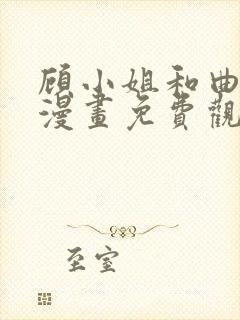 顾小姐和曲
漫畫免費觀
至室